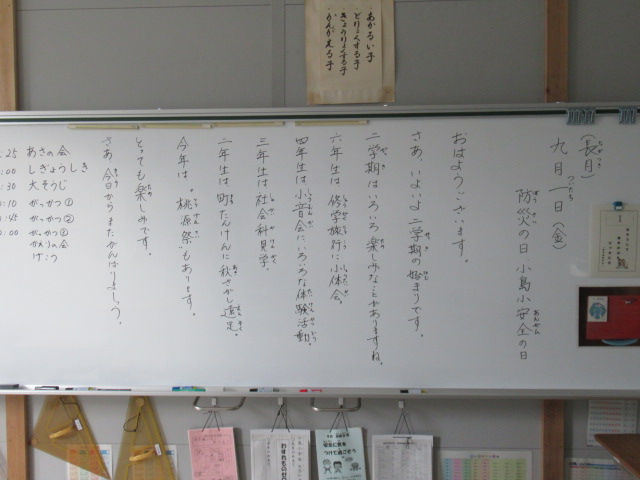 あかるい子
どりょくする子
きょうりょくする子
かんがえる子
(長月)
九月一日(金)
防災の日 小島小安全の日
おはようございます。
さあ、いよいよ二学期の始まりです。
二学期はいろいろ楽しみなことがありますね。
六年生は修学旅行に小体会。
四年生は小音会にいろいろな体験活動。
三年生は社会科見学。
二年生は町たんけんに秋さがし遠足。
今年は"桃源祭"もあります。
とっても楽しみです。
さあ、今日からまたがんばりましょう。
:25 あさの会
:00 しぎょうしき
:30 大そうじ
:10 がっかつ①
:45 がっかつ②
:00 がっかつ③
かえりの会
げこう
安全に気を
つけて過ごそう
わすれもの